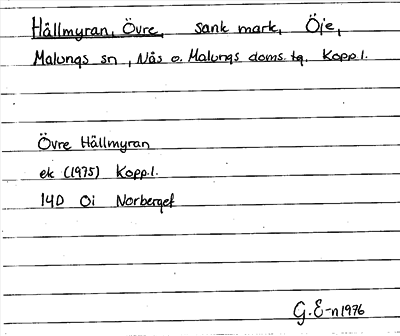 Hällmyran, Övre, sank mark, Öje,
Malungs sn, Nås o. Malungs doms. tg. Kopp.l.
Övre Hällmyran
ek (1975) Kopp.l.
14D Oi Norberget
G. E-n 1976